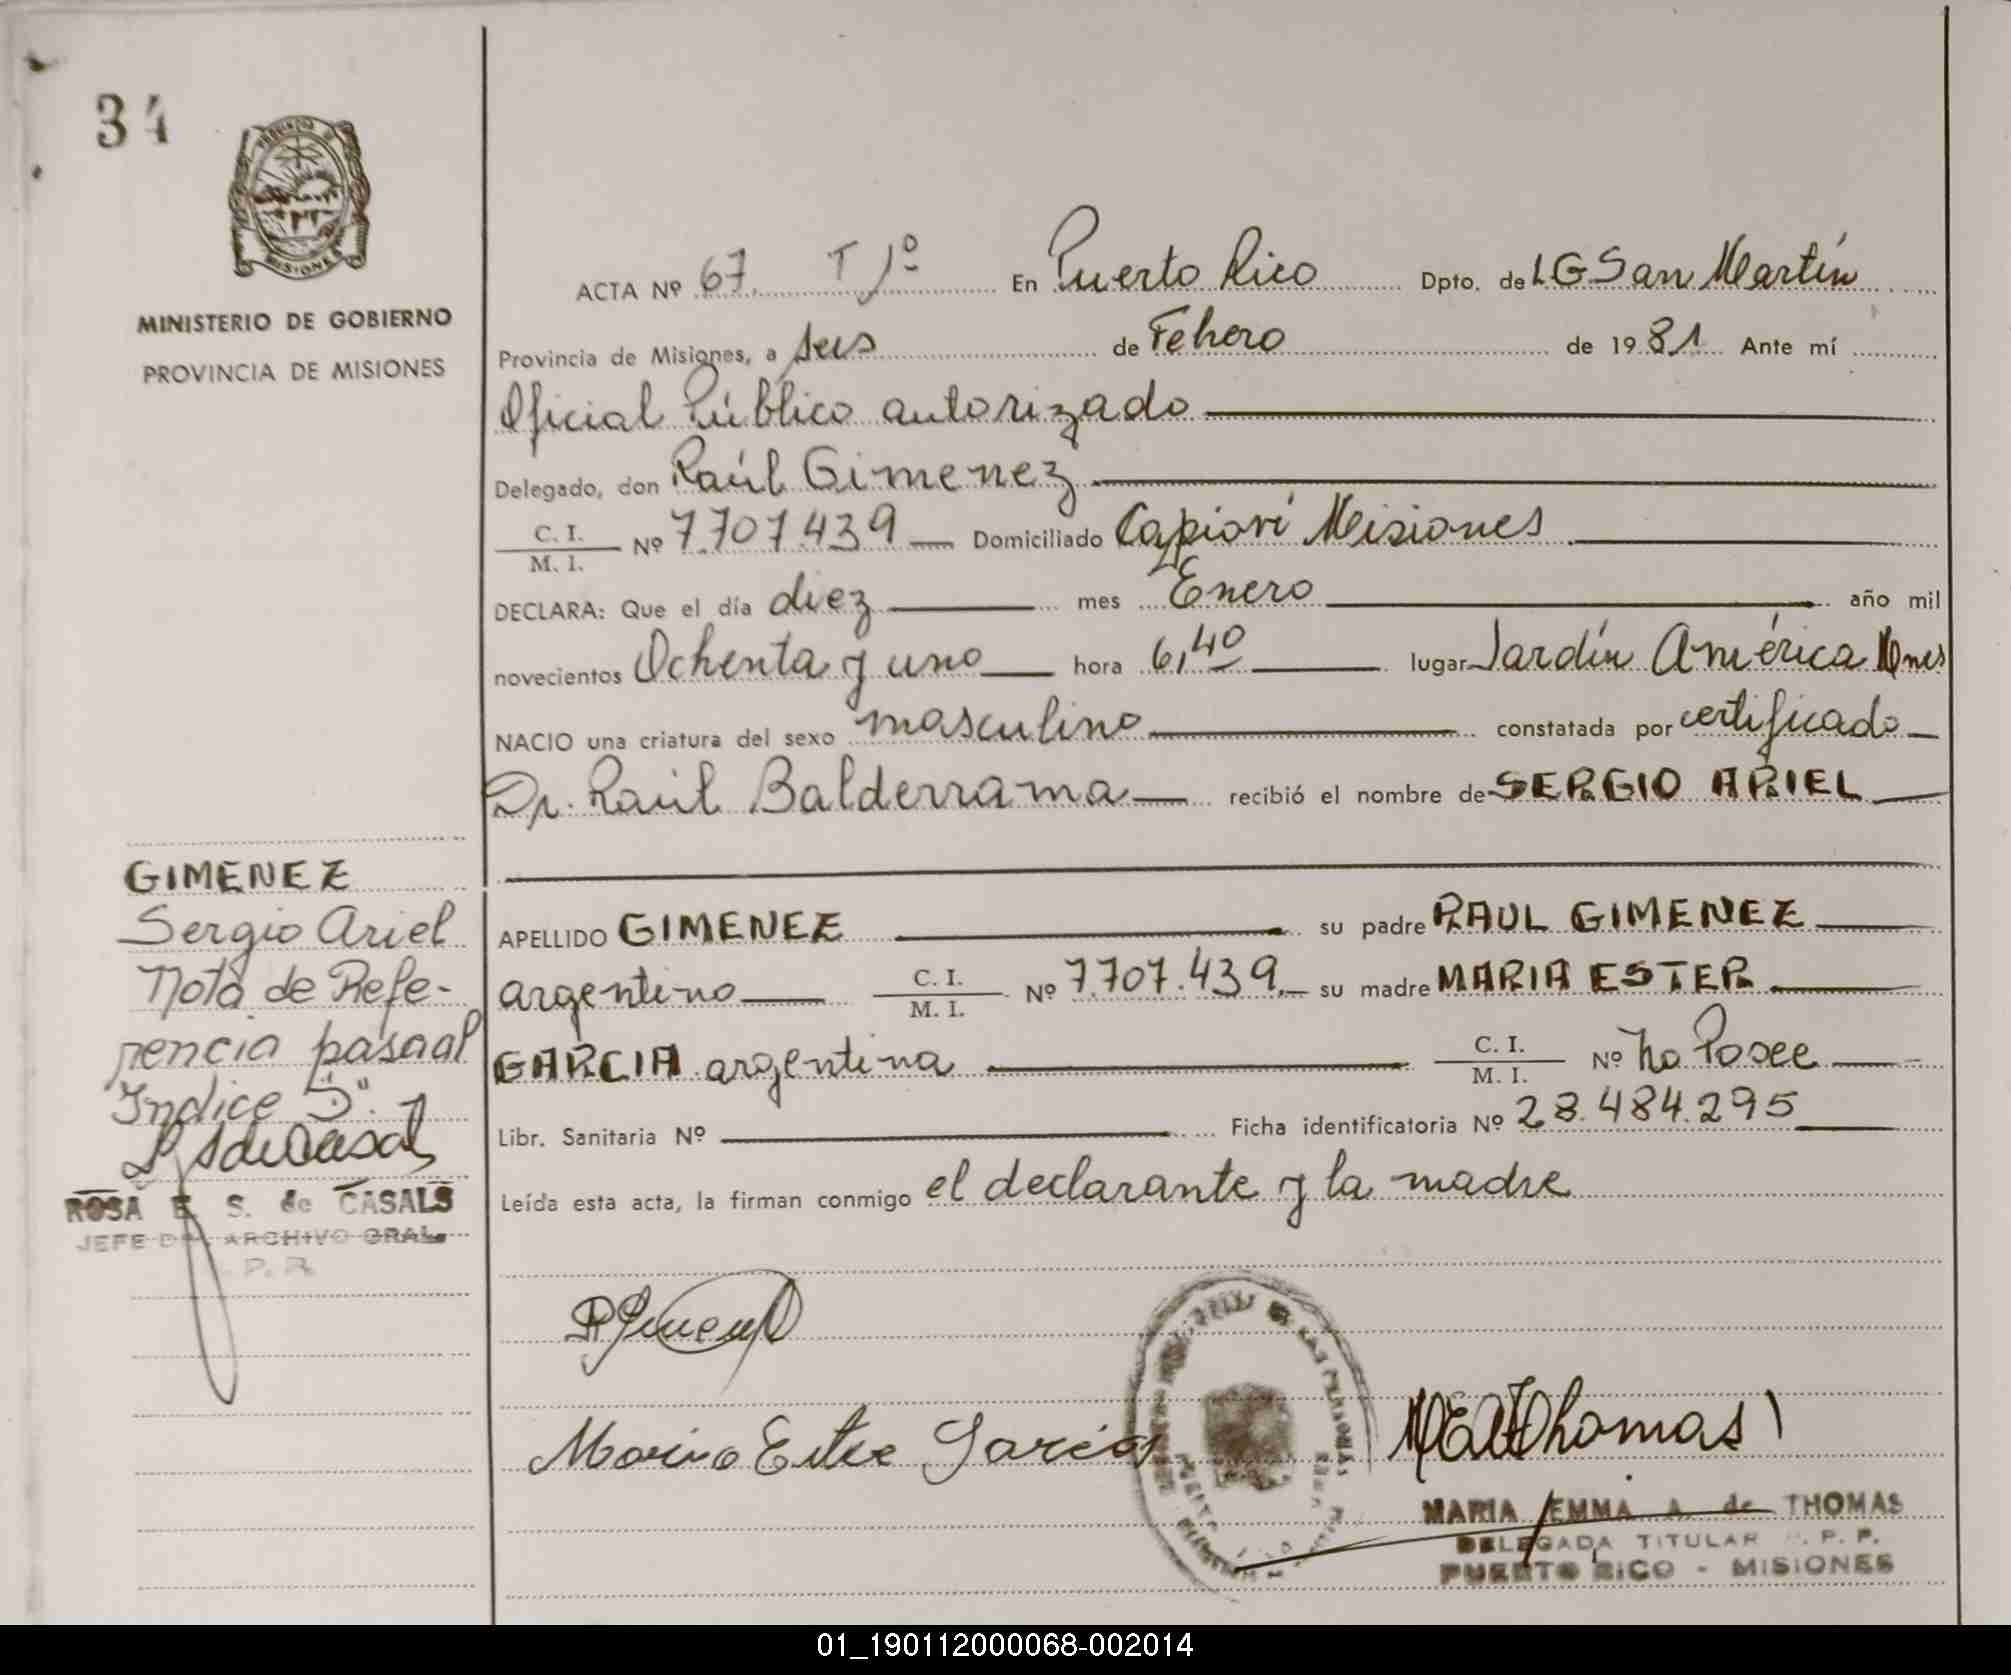 34
PROVINCIA DE
MISIONES
MINISTERIO DE GOBIERNO
PROVINCIA DE MISIONES
ACTA Nº 67. T 1º En Puerto Rico Dpto. de L G San Martín
Provincia de Misiones, a seis de Febrero de 1981 Ante mí
Oficial Público autorizado
Delegado, don Raúl Gimenez
C. I.
M. I. Nº 7.707.439 Domiciliado Capiovi Misiones
DECLARA: Que el día diez mes Enero año mil
novecientos Ochenta y uno hora 6,40 lugar Jardín América Mnes
NACIO una criatura del sexo masculino constatada por certificado
Dr. Raúl Balderrama recibió el nombre de SERGIO ARIEL
APELLIDO GIMENEZ su padre RAUL GIMENEZ
argentino C. I.
M. I. Nº 7.707.439. su madre MARIA ESTER
GARCIA argentina C. I.
M. I. Nº No Posee
Libr. Sanitaria Nº Ficha identificatoria Nº 28.484.295
Leída esta acta, la firman conmigo el declarante y la madre
GIMENEZ
Sergio Ariel
Nota de Refe-
rencia pasaal
Indice
ROSA E. S. de CASALS
JEFE DEL ARCHIVO GRAL.
P. R.
Maria Ester Garcia
MEA de Thomas
MARIA EMMA A. de THOMAS
DELEGADA TITULAR R. P. P.
PUERTO RICO - MISIONES
01_190112000068-002014